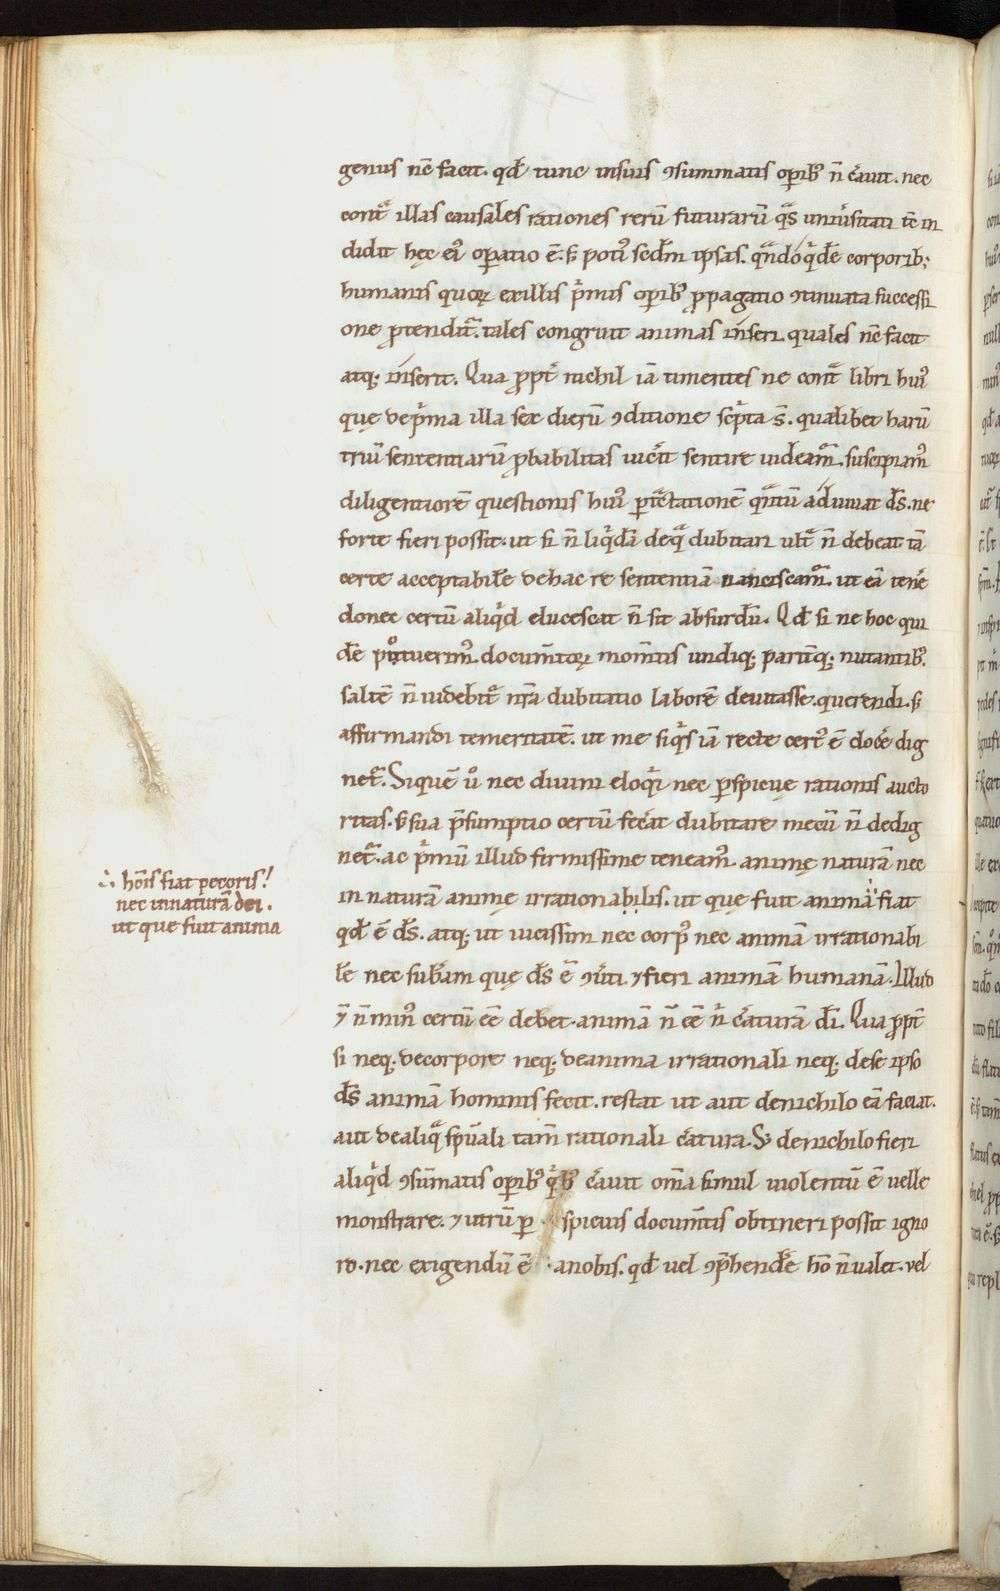 genus nc̄ facit. qđ tunc insuis ꝯsummatis oꝑib; n̄ c̄auit. nec
cont̄ illas causales rationes rerū futurarū q̄s uniūsitati tc̄ in
didit hęc eiꝰ oꝑatio ē. s; potiꝰ scd̄m ipsas. q̄ndo q̇dē corporib;
humanis quoꝝ exillis ṗmis oꝑib; ꝓpagatio ꝯtinuata successi
one ꝓtendit̄. tales congruit animas inseri quales nc̄ facit
atq; inserit. Qua ꝓpt̄ nichil iā timentes ne cont̄ libri huiꝰ
que deṗma illa sex dierū ꝯditione sċpta s̄. qualibet harū
triū sententiarū ꝓbabilitas uic̄it sentire uideam̄. suscipiamꝰ
diligentiorē questionis huiꝰ ꝑt̄ctationē q̄ntū adiuuat d̄s. ne
forte fieri possit. ut si n̄ liq̇dā deq̄ dubitari ult̄ n̄ debeat tā
certe acceptabilē dehac re sententiā nanciscam̄. ut eā ten̄e
donec certū aliq̇d elucescat n̄ sit absurdū. Qđ si ne hoc qui
dē potuerimꝰ documtoꝝ mom̄tis undiq; pariīq; nutantib;
saltē n̄ uidebit̄ nr̄a dubitatio laborē deuitasse querendi. s;
affirmandi temeritatē. ut me siq̇s iā recte certꝰ ē doc̄e dig
net̄. Siquē u̇ nec diuini eloq̇i nec ꝑspicuę rationis aucto
ritas. s; sua p̄sumptio certū fec̄at dubitare mecū n̄ dedig
net̄. ac ṗmū illud firmissime teneamꝰ animę naturā nec
in naturā animę irrationabilis. ut quę fuit animā fiat
∴ hōis fiat pecoris!
nec innaturā dei.
ut que fuit anima
qđ ē d̄s. atq; ut uicissim nec corpꝰ nec animā irrationabi
lē nec sub̄am quę d̄s ē ꝯūti ⁊ fieri animā humanā. Illud
⁊̄ n̄ minꝰ certū eē debet. animā n̄ eē n̄ c̄aturā dī. Qua ꝓpt̄
si neq; decorpore neq; deanima irrationali neq; dese ipso
d̄s animā hominis fecit. restat ut aut denichilo eā faciat.
aut dealiq̄ spūali tam̄ rationali c̄atura. S; denichilo fieri
aliq̇d ꝯsūmatis oꝑib; q̇b; c̄auit om̄a simul uiolentū ē uelle
monstrare. ⁊ utrū ꝑ spicuis documtis obtineri possit igno
ro. nec exigendū ē anobis. qđ uel ꝯp̄hendēe hō n̄ualet. uel